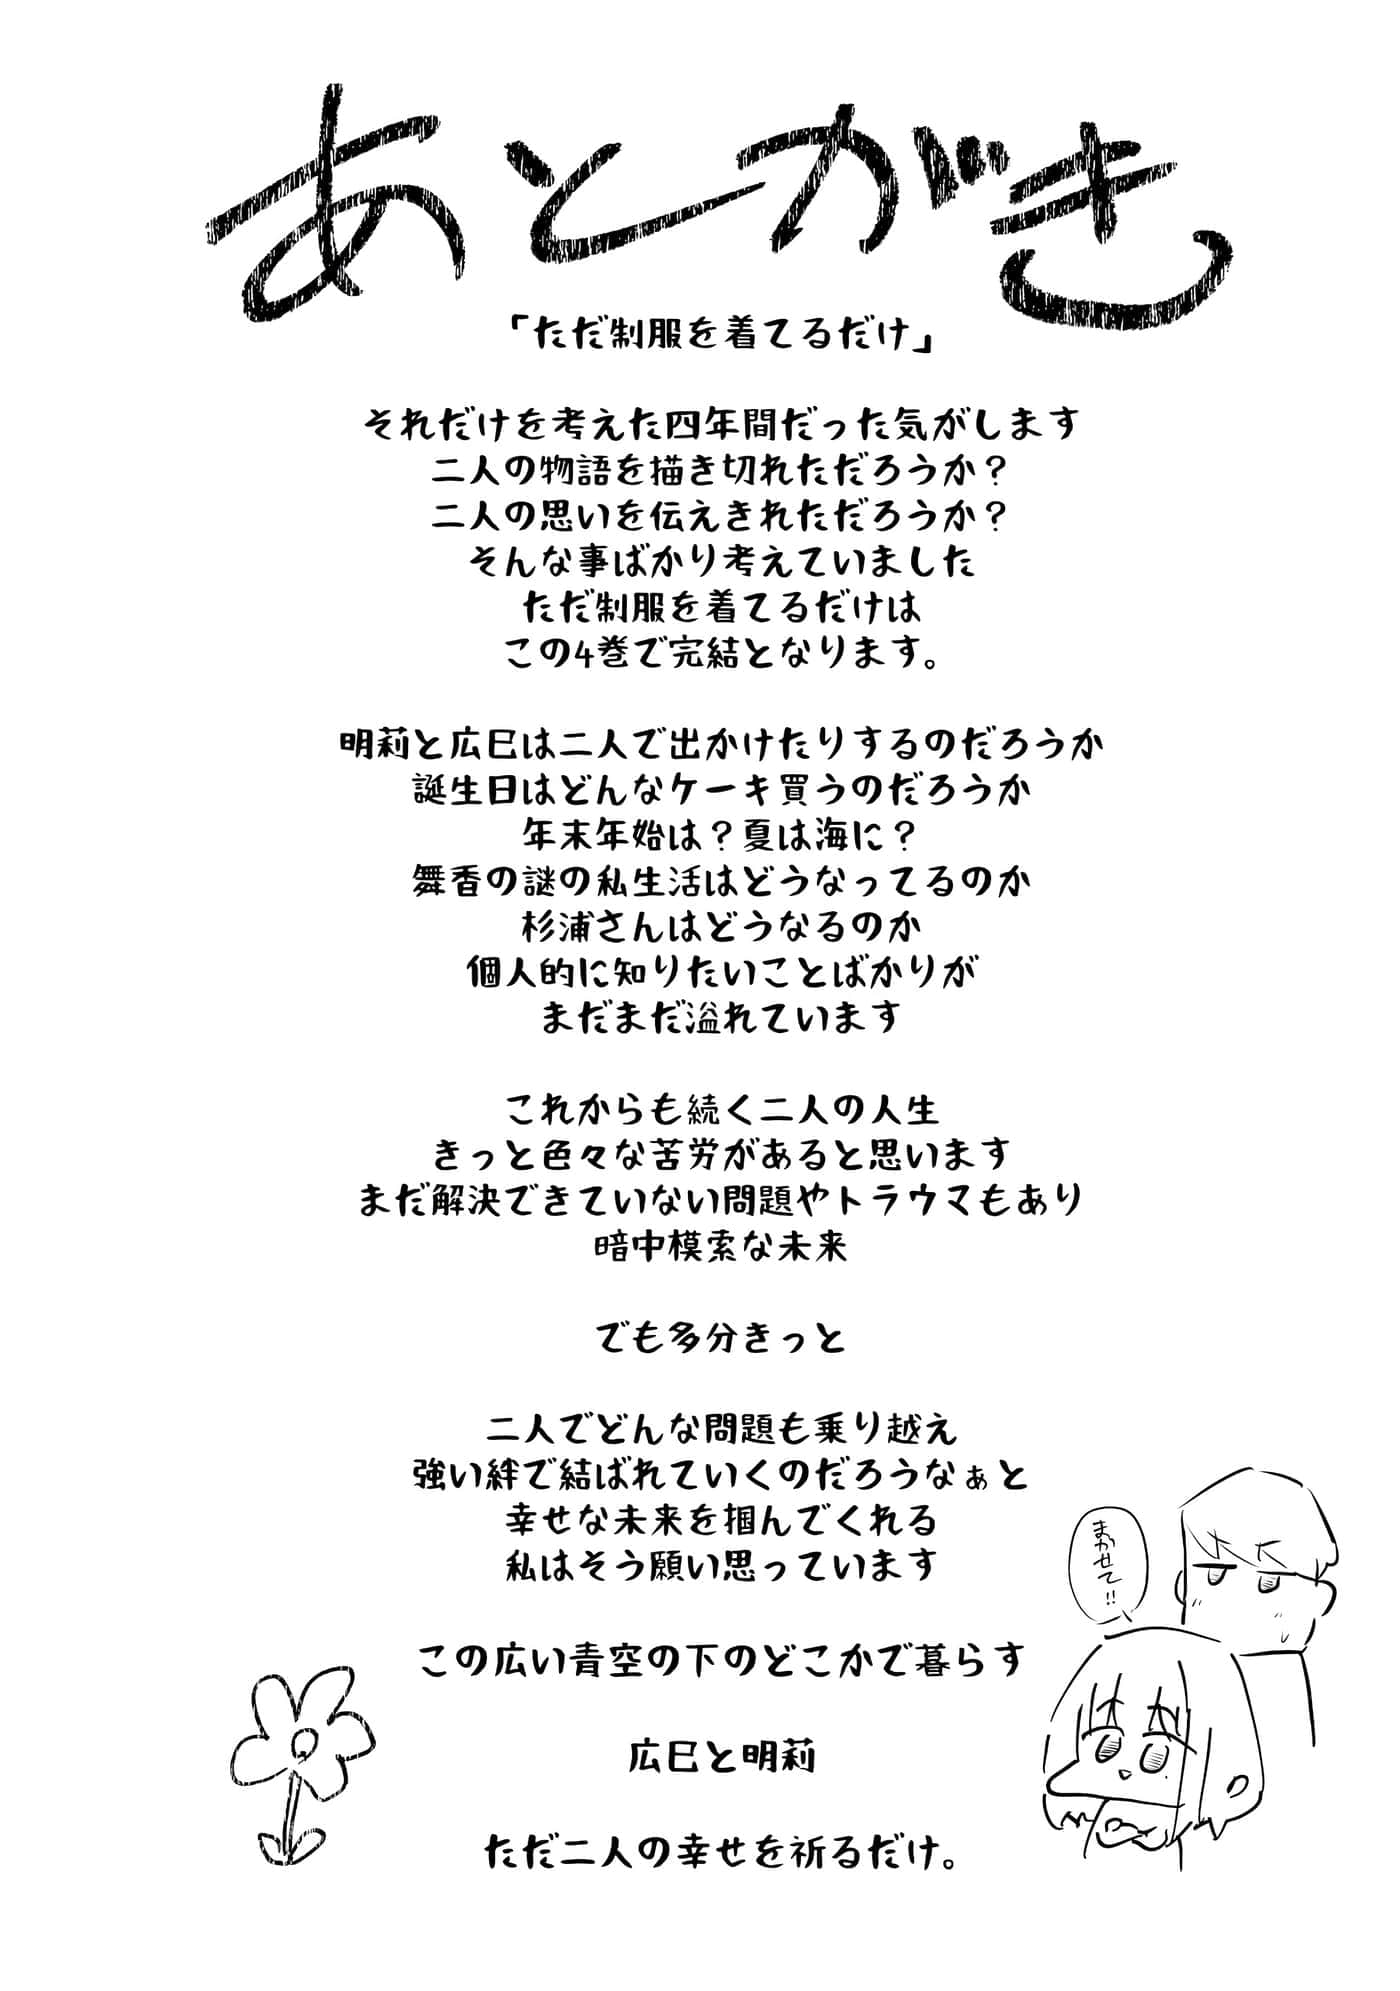 あとがき
「ただ制服を着てるだけ」
それだけを考えた四年間だった気がします
二人の物語を描き切れただろうか？
二人の思いを伝えきれただろうか？
そんな事ばかり考えていました
ただ制服を着てるだけは
この4巻で完結となります。
明莉と広巳は二人で出かけたりするのだろうか
誕生日はどんなケーキ買うのだろうか
年末年始は？夏は海に？
舞香の謎の私生活はどうなってるのか
杉浦さんはどうなるのか
個人的に知りたいことばかりが
まだまだ溢れています
これからも続く二人の人生
きっと色々な苦労があると思います
まだ解決できていない問題やトラウマもあり
暗中模索な未来
でも多分きっと
二人でどんな問題も乗り越え
強い絆で結ばれていくのだろうなぁと
幸せな未来を掴んでくれる
私はそう願い思っています
この広い青空の下のどこかで暮らす
広巳と明莉
ただ二人の幸せを祈るだけ。
まかせて!!